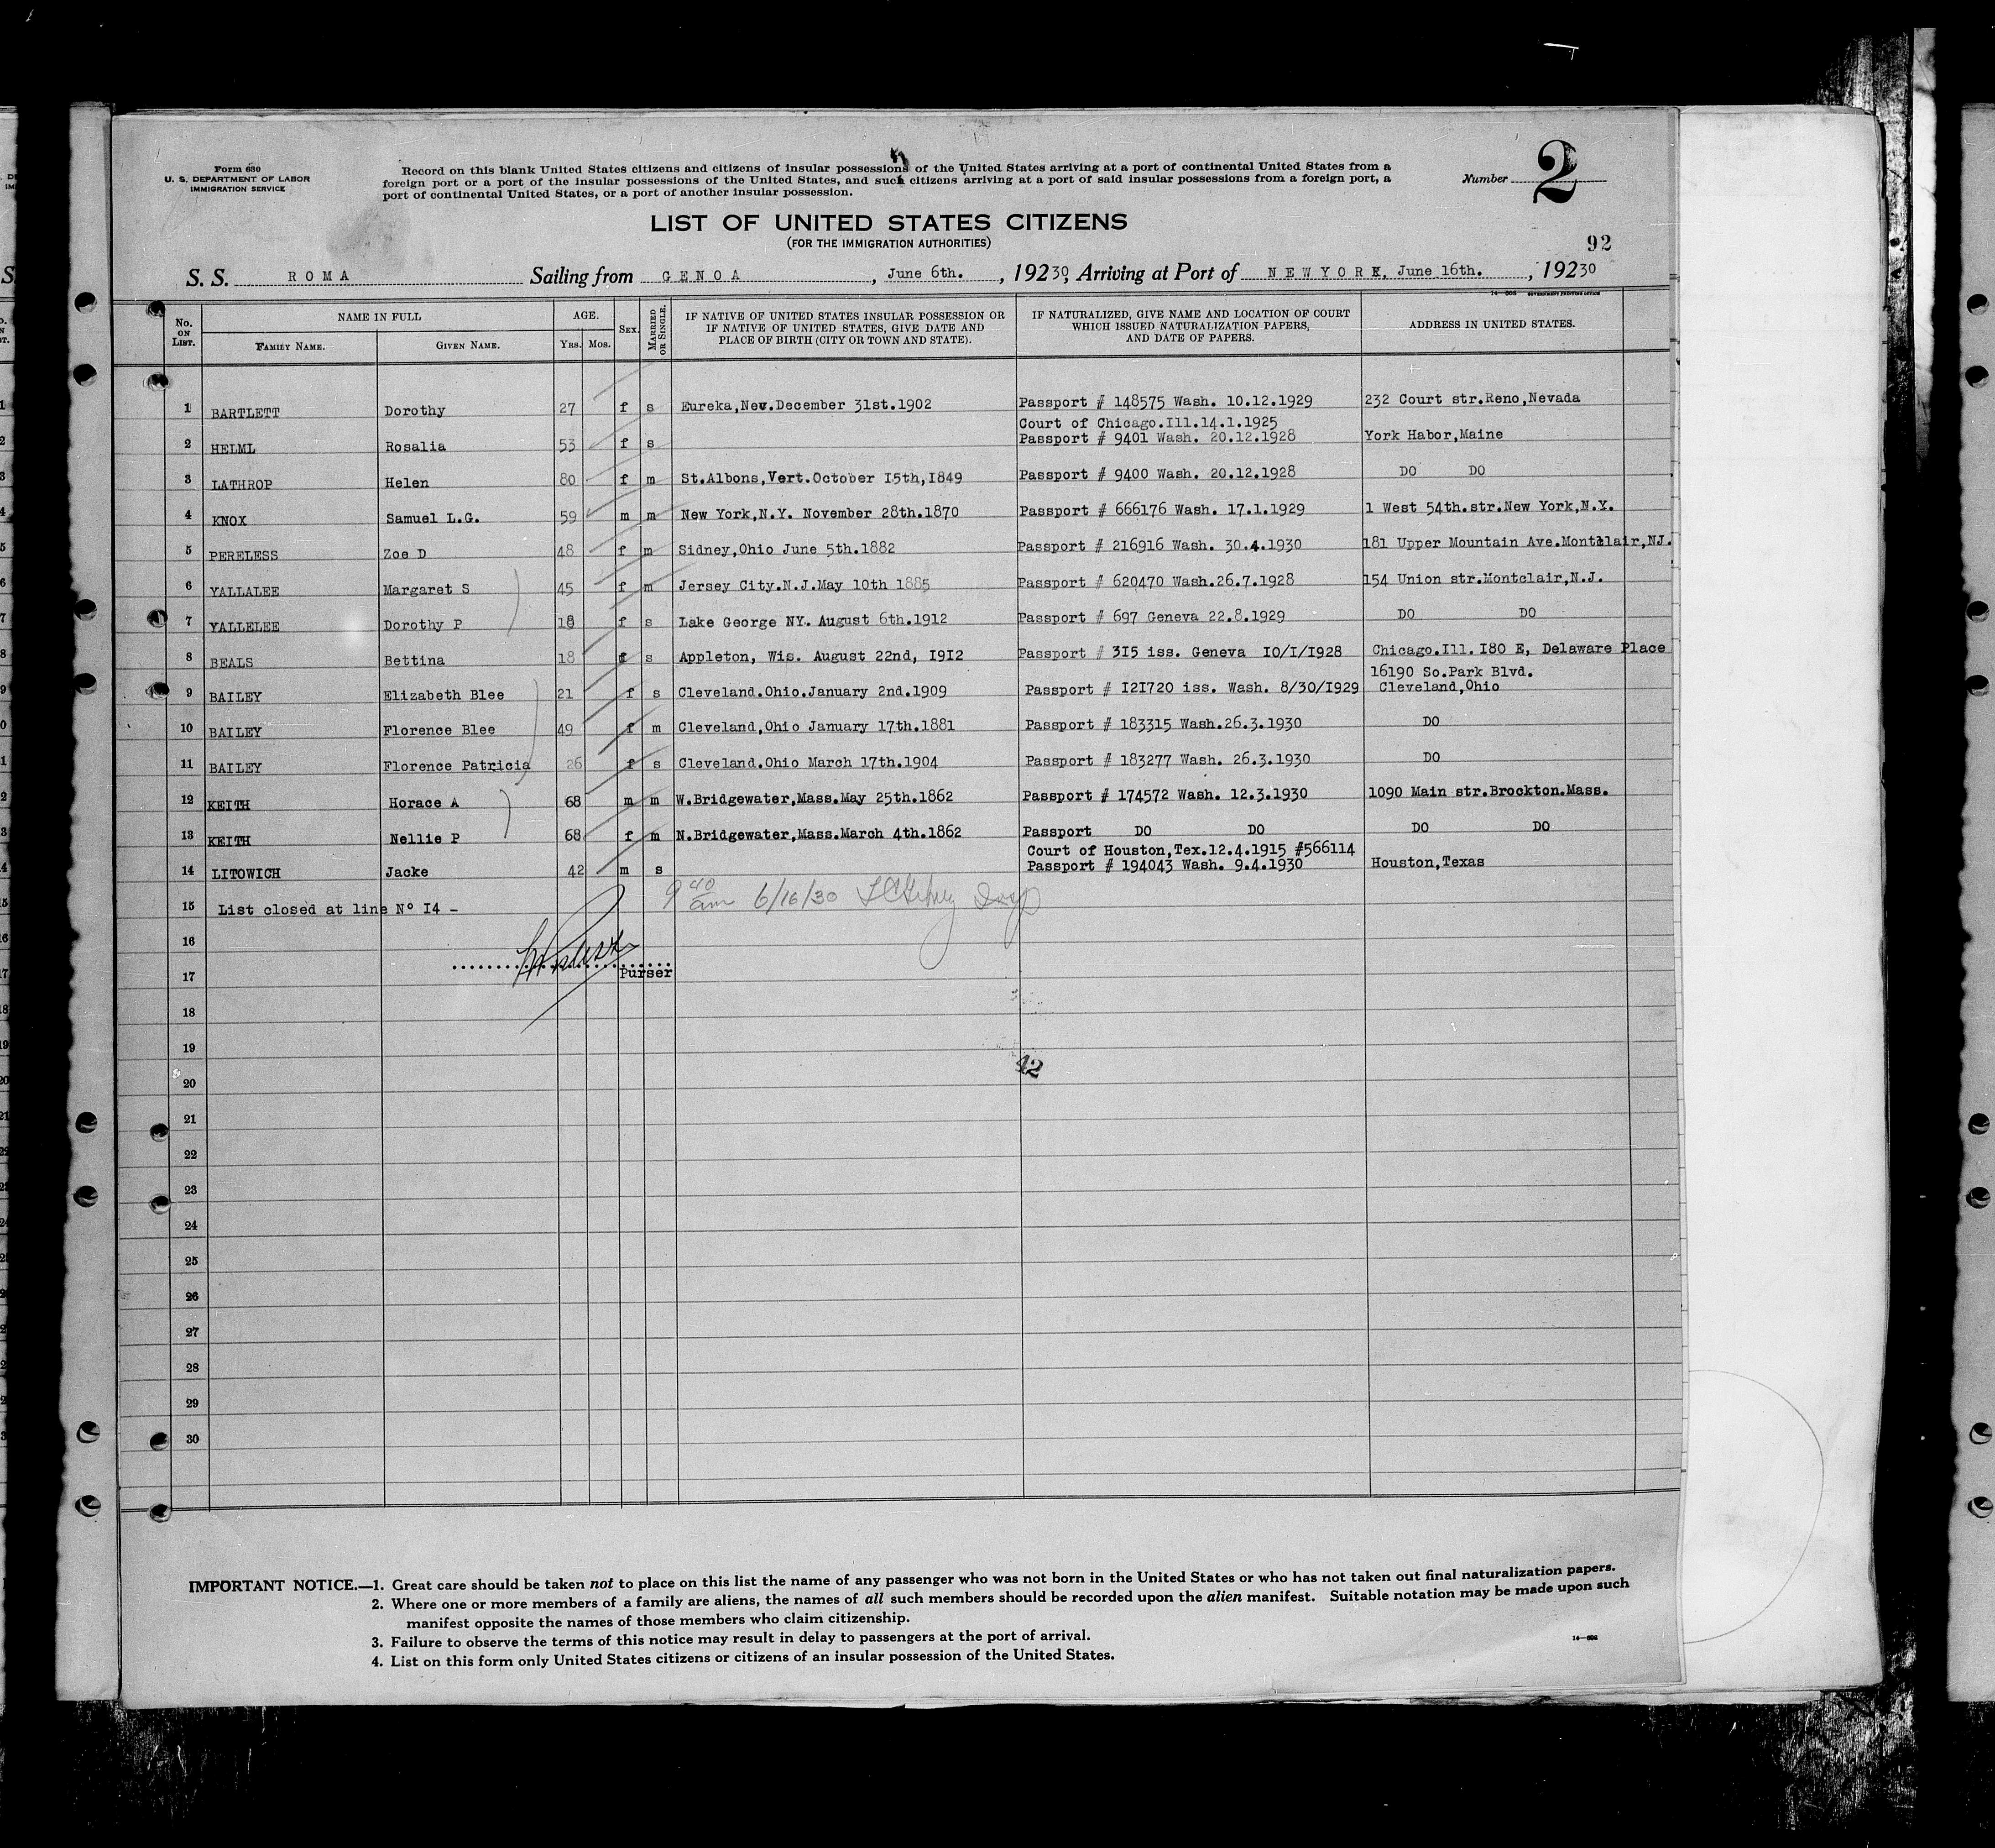 Form 630
U. S. DEPARTMENT OF LABOR
IMMIGRATION SERVICE
Record on this blank United States citizens and citizens of insular possessions of the United States arriving at a port of continental United States from a
foreign port or a port of the insular possessions of the United States, and such citizens arriving at a port of said insular possessions from a foreign port, a
port of continental United States, or a port of another insular possession.
Number 2
LIST OF UNITED STATES CITIZENS
(FOR THE IMMIGRATION AUTHORITIES)
92
S. S. ROMA Sailing from GENOA, June 6th., 19230, Arriving at Port of NEWYORK, June 16th., 19230
No. ON LIST. NAME IN FULL FAMILY NAME. GIVEN NAME. AGE. YRS. MOS. SEX. MARRIED OR SINGLE. IF NATIVE OF UNITED STATES INSULAR POSSESSION OR IF NATIVE OF UNITED STATES, GIVE DATE AND PLACE OF BIRTH (CITY OR TOWN AND STATE). IF NATURALIZED, GIVE NAME AND LOCATION OF COURT WHICH ISSUED NATURALIZATION PAPERS, AND DATE OF PAPERS. ADDRESS IN UNITED STATES.
1 BARTLETT Dorothy 27 f s Eureka,Nev.December 31st.1902 Passport # 148575 Wash. 10.12.1929 232 Court str.Reno,Nevada
Court of Chicago.Ill.14.1.1925
2 HELML Rosalia 53 f s Passport # 9401 Wash. 20.12.1928 York Habor,Maine
3 LATHROP Helen 80 f m St.Albons,Vert.October 15th,1849 Passport # 9400 Wash. 20.12.1928 DO DO
4 KNOX Samuel L.G. 59 m m New York,N.Y. November 28th.1870 Passport # 666176 Wash. 17.1.1929 1 West 54th.str.New York,N.Y.
5 PERELESS Zoe D 48 f m Sidney,Ohio June 5th.1882 Passport # 216916 Wash. 30.4.1930 181 Upper Mountain Ave.Montclair,NJ.
6 YALLALEE Margaret S 45 f m Jersey City.N.J.May 10th 1885 Passport # 620470 Wash.26.7.1928 154 Union str.Montclair,N.J.
7 YALLELEE Dorothy P 18 f s Lake George NY. August 6th.1912 Passport # 697 Geneva 22.8.1929 DO DO
8 BEALS Bettina 18 f s Appleton, Wis. August 22nd, I9I2 Passport # 3I5 iss. Geneva IO/I/I928 Chicago.Ill. I80 E, Delaware Place
16190 So.Park Blvd.
9 BAILEY Elizabeth Blee 21 f s Cleveland.Ohio.January 2nd.1909 Passport # I2I720 iss. Wash. 8/30/I929 Cleveland,Ohio
10 BAILEY Florence Blee 49 f m Cleveland,Ohio January 17th.1881 Passport # 183315 Wash.26.3.1930 DO
11 BAILEY Florence Patricia 26 f s Cleveland.Ohio March 17th.1904 Passport # 183277 Wash. 26.3.1930 DO
12 KEITH Horace A 68 m m W.Bridgewater,Mass.May 25th.1862 Passport # 174572 Wash. 12.3.1930 1090 Main str.Brockton.Mass.
13 KEITH Nellie P 68 f m N.Bridgewater,Mass.March 4th.1862 Passport DO DO DO DO
Court of Houston,Tex.12.4.1915 #566114
14 LITOWICH Jacke 42 m s Passport # 194043 Wash. 9.4.1930 Houston,Texas
9 40 am 6/16/30
15 List closed at line N° I4 -
16
Purser
17
18
19
42
20
21
22
23
24
25
26
27
28
29
30
IMPORTANT NOTICE.—1. Great care should be taken not to place on this list the name of any passenger who was not born in the United States or who has not taken out final naturalization papers.
2. Where one or more members of a family are aliens, the names of all such members should be recorded upon the alien manifest. Suitable notation may be made upon such
manifest opposite the names of those members who claim citizenship.
3. Failure to observe the terms of this notice may result in delay to passengers at the port of arrival.
4. List on this form only United States citizens or citizens of an insular possession of the United States.